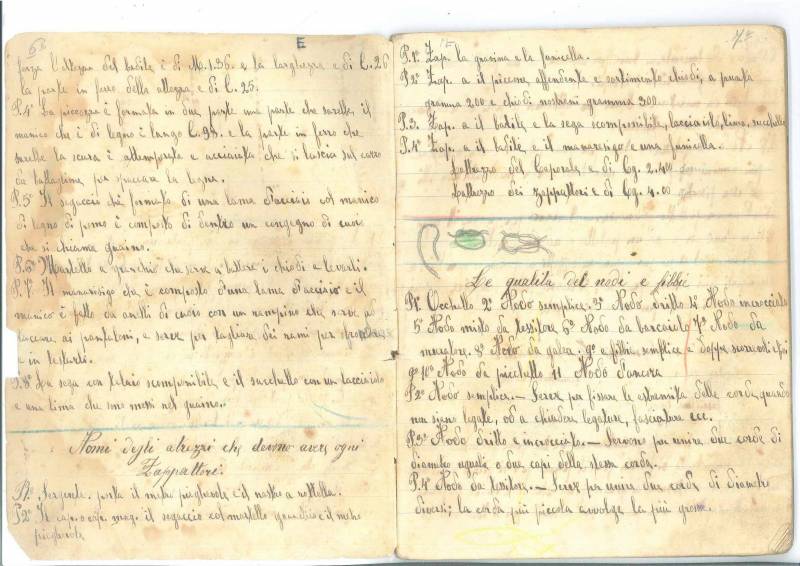 6a
E
forza l'altezza del badile è di M.1.36 e la larghezza e di C.26
la parte in ferro della altezza, e di C.25.
P.4° La picozza è formata in due parte una parte che sarebbe il
manico che è di legno è lungo C.98. e la parte in ferro che
sarebbe la scura è attemperata e acciaiata che si lascia sul carro
da battaglione per spaccare la legna.
P.5° Il segaccio ché formato di una lama d'acciaio col manico
di legno di pomo è composto di dentro un congegno di cuoio
che si chiama guaino.
P.6° Martello a granchio che serve a battere i chiodi a levarli.
P.7° Il manarisigo che è composto d'una lama d'acciaio e il
manico è fatto da anelli di cuoio con un rampino che serve ad
taccare ai pantaloni, e serve per tagliare dei rami per
e in testarli.
P.8° La sega con telaio scomponibile e il succhello con un lacciaiolo
e una lima che sono messi nel guaino.
Nomi degli atrezzi che devono avere ogni
Zappattore.
P.1° Sergente. porta il metro pieghevole e il nastro a rottella.
P.2° Il cap. o cap. mag. il segaccio col martello granchio e il metro
pieghevole
IE
7a
P.1° Zap. la gravina e la funicella.
P.2° Zap. a il piccone affendente e sortimento chiodi, a punta
gramma 200 e chiodi nostrani gramma 300.
P.3. Zap. a il batile e la sega scomponibile, lacciaiolo, lima, succhello
P.4° Zap. a il badile e il manarengo e una funicella.
L'attrezzo del Caporale e di Cg. 2.400
L'attrezzo dei zappattori e di Cg. 4.00
Le qualità dei nodi e fibbie
P.1° Occhello 2° Nodo semplice. 3° Nodo dritto 4° Nodo incrocciato
5° Nodo misto da tessitore 6° Nodo da barcaiolo 7° Nodo da
muratore. 8° Nodo da galera. 9° a fibbia semplice e doppia
9° 10° Nodo da picchetto 11 Nodo d'ancora
P.2° Nodo semplice. – Serve per fissare le estremità delle corde, quando
non siano legate, od a chiudere legature, fasciature ecc.
P.3° Nodo dritto e incrocciato. – Servono per unire due corde di
diametro uguale o due capi della stessa corda.
P.4° Nodo da tessitore. – Serve per unire due corde di diametro
diversi; la corda più piccola avvolge la più grossa.